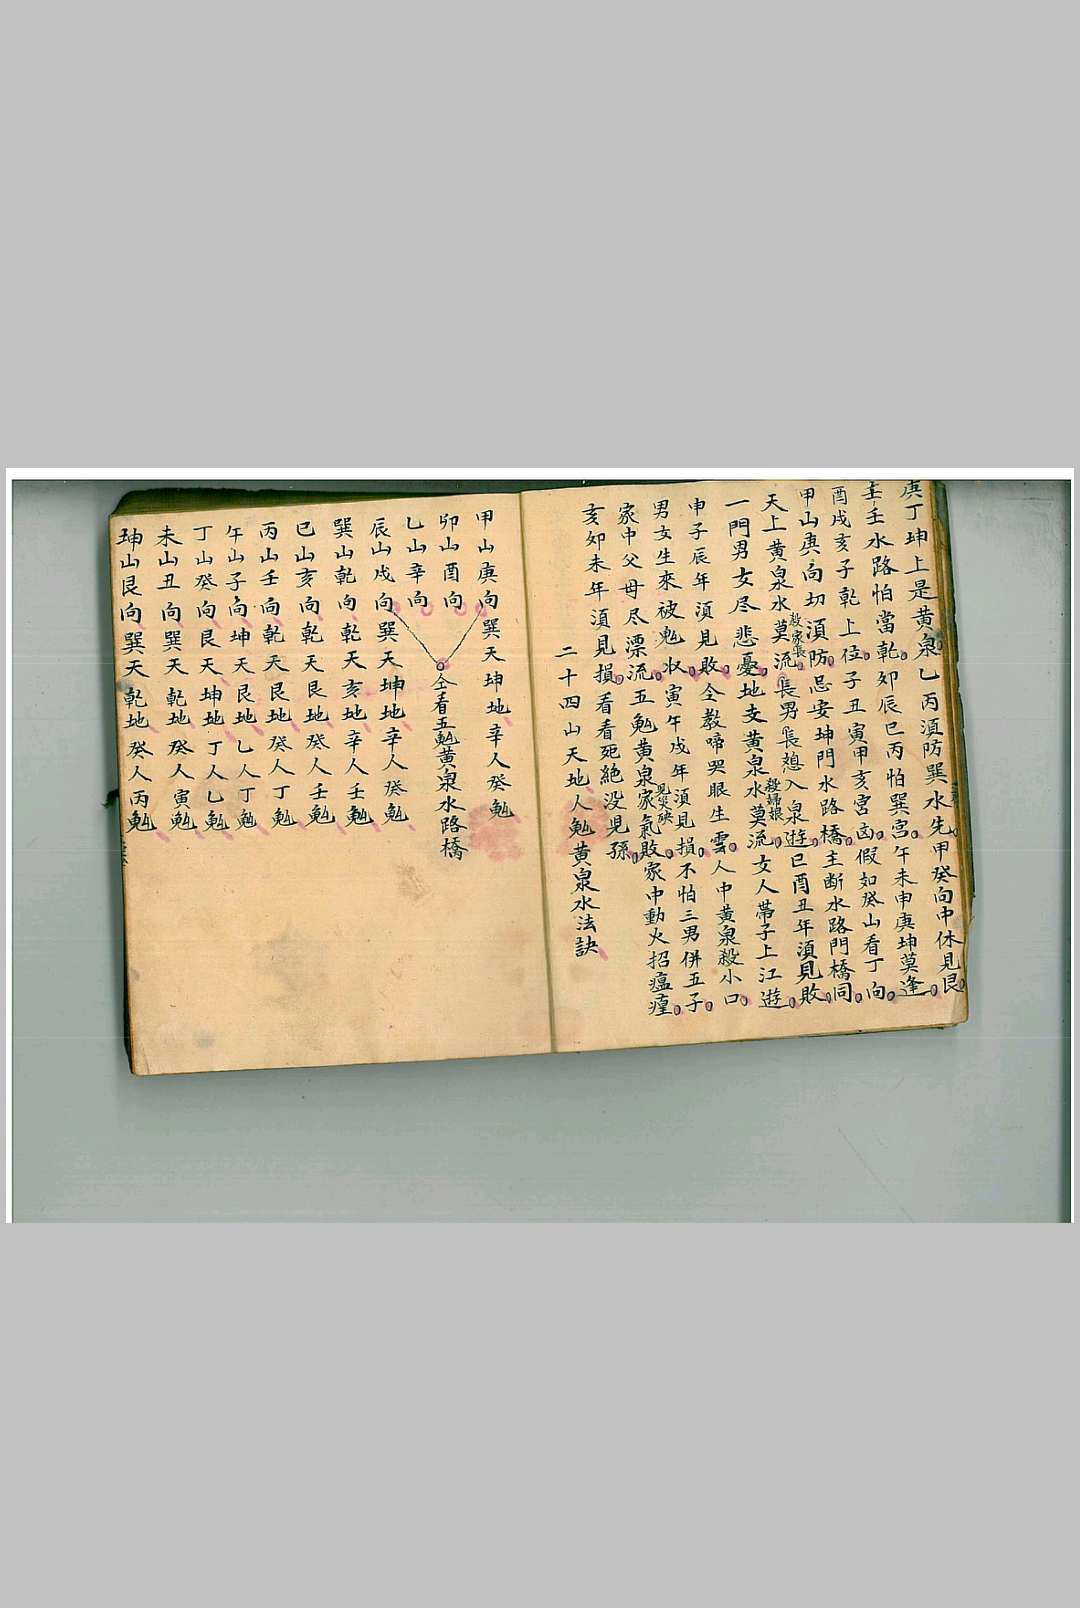 庚丁坤上是黃泉乙丙湏防巽水先甲癸向中休見艮
壬水路怕當乾卯辰巳丙怕巽宮午未申庚坤莫逢
酉戌亥子乾上位子丑寅甲亥宮凶假如癸山看丁向
甲山庚向切湏防忌安坤門水路橋主断水路門橋同
殺家長
天上黃泉水莫流長男長媳入泉遊巳酉丑年湏見敗
殺婦娘
一門男女尽悲憂地支黃泉水莫流女人帶子上江遊
申子辰年湏見敗全教啼哭眼生雲人中黃泉殺小口
男女生來被鬼收寅午戌年湏見損不怕三男併五子
見災殃
家中父母尽漂流五鬼黃泉家氣敗家中動火招瘟瘟
亥卯未年湏見損看看死絕没見孫
二十四山天地人鬼黃泉水法訣
甲山庚向巽天坤地辛人癸鬼
卯山酉向
仝看五鬼黃泉水路橋
乙山辛向
辰山戌向巽天坤地辛人癸鬼
巽山乾向乾天亥地辛人壬鬼
巳山亥向乾天艮地癸人壬鬼
丙山壬向乾天艮地癸人丁鬼
午山子向坤天艮地乙人丁鬼
丁山癸向艮天坤地丁人乙鬼
未山丑向巽天乾地癸人寅鬼
坤山艮向巽天乾地癸人丙鬼